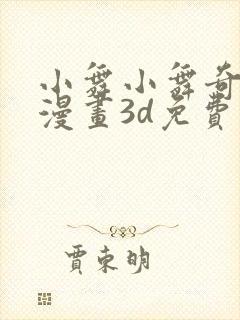 小舞小舞奇
漫畫3d免費
賈東明